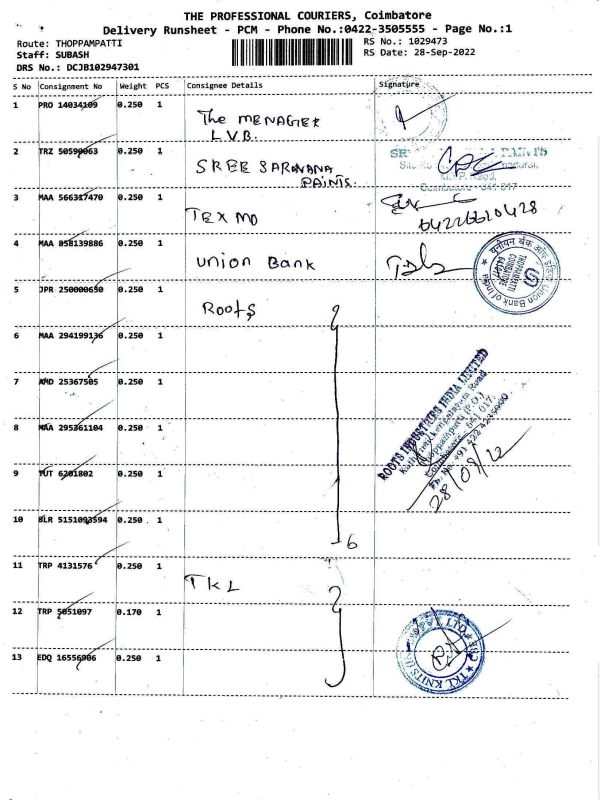 THE PROFESSIONAL COURIERS, Coimbatore
Delivery Runsheet - PCM - Phone No.:0422-3505555 - Page No.:1
Route: THOPPAMPATTI
Staff: SUBASH
DRS No.: DCJB102947301
RS No.: 1029473
RS Date: 28-Sep-2022
S No Consignment No Weight PCS Consignee Details Signature
1 PRO 14034109 0.250 1 The MENAGER
L.V.B.
2 TRZ 50590063 0.250 1 SREE SARAVANA
PAINTS.
PAINTS
Coimbatore - 641 017
3 MAA 566317470 0.250 1 TEX MO
04226620428
4 MAA 858139886 0.250 1 Union Bank
यूनियन बैंक ऑफ इंडिया Union Bank of India
THOPPAMPATTI
COIMBATORE
641017
5 JPR 250000650 0.250 1 Roots
6 MAA 294199136 0.250 1
7 AMD 25367505 0.250 1
8 MAA 295361104 0.250 1
ROOTS INDUSTRIES INDIA LIMITED
Thoppampatti (P.O.)
Coimbatore - 641 017.
Ph. No. +91 422 4235000
28/09/22
9 TUT 6201802 0.250 1
10 BLR 5151093594 0.250 1
6
11 TRP 4131576 0.250 1 TKL
12 TRP 5051097 0.170 1
13 EDQ 16556906 0.250 1
TKL KNITS (INDIA) PVT LTD